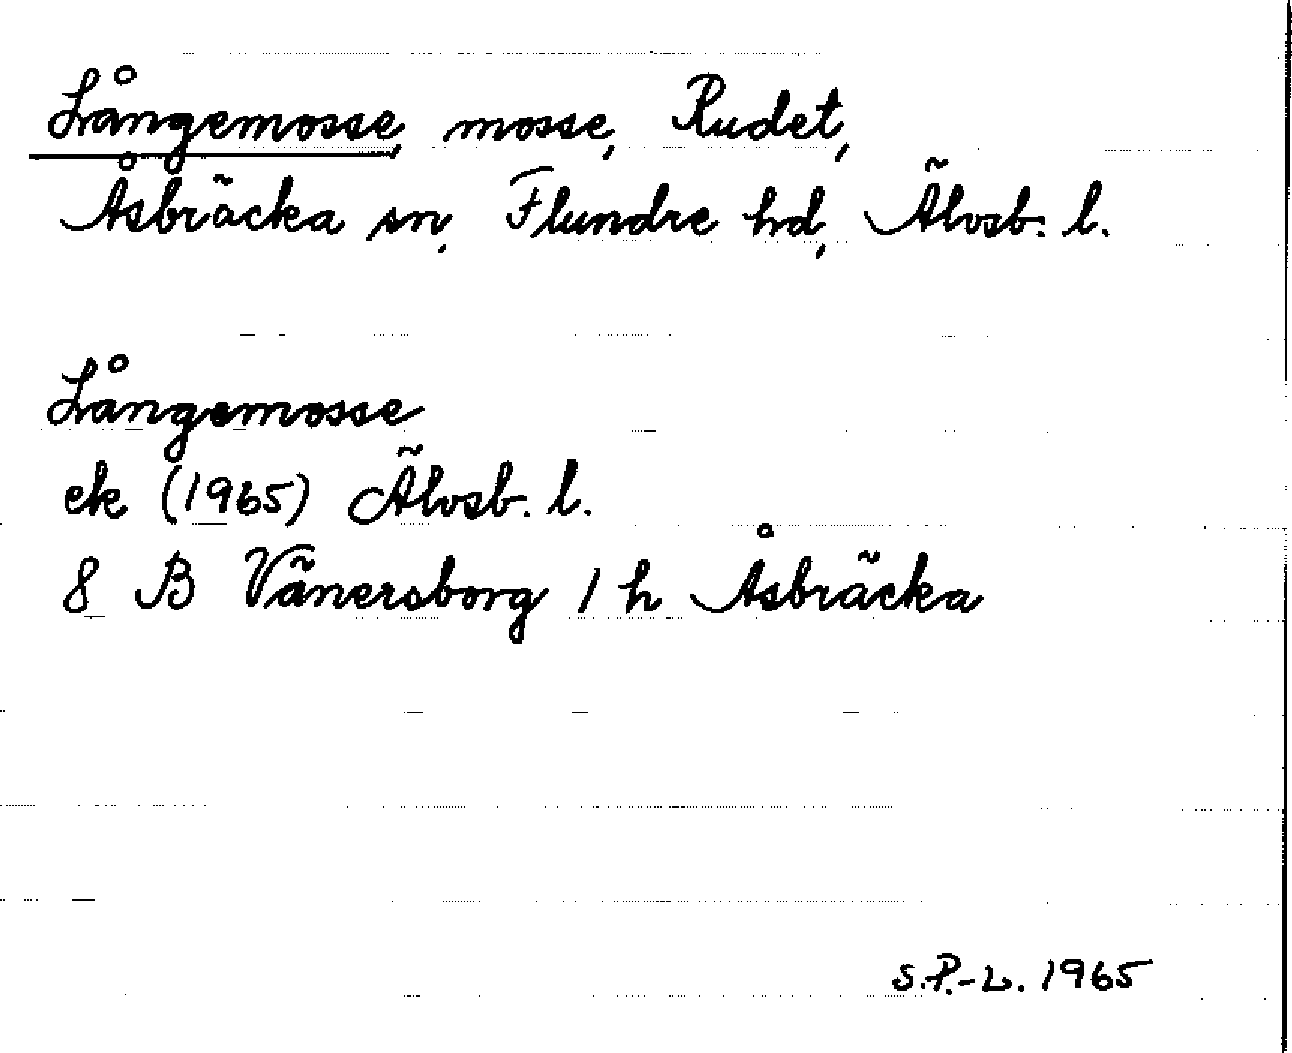 Långemosse, mosse, Rudet,
Åsbräcka sn, Flundre hd, Älvsb. l.
Långemosse
ek (1965) Älvsb. l.
8 B Vänersborg 1 h Åsbräcka
S.P.-L. 1965